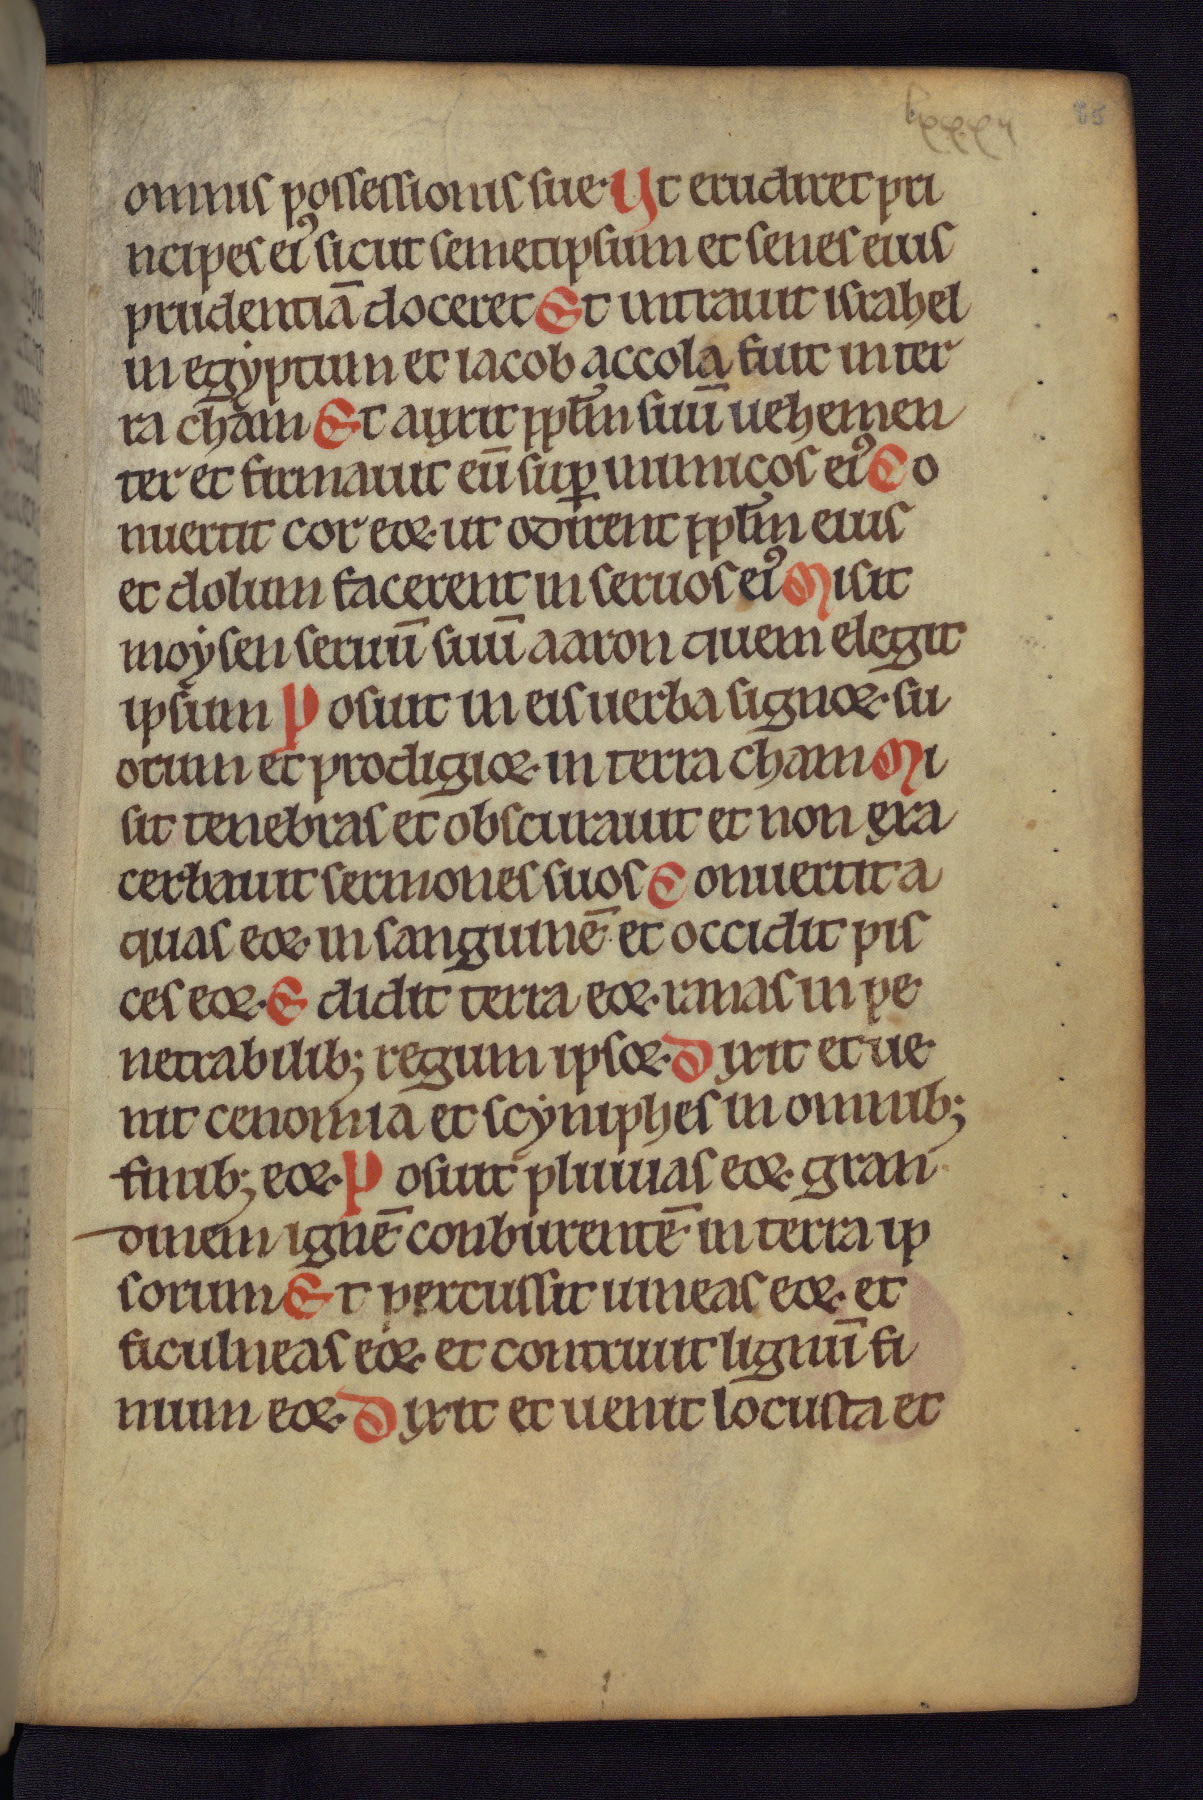 omnis possessionis sue· Ut erudiret pri
ncipes eiꝰ sicut semetipsum et senes eius
prudentiā doceret Et intrauit israhel
in egyptum et iacob accola fuit in ter
ra cham Et auxit pplm̄ suū uehemen
ter et firmauit eū suꝑ inimicos eiꝰ Co
nuertit cor eoꝝ· ut odirent pplm̄ eius
et dolum facerent in seruos eiꝰ Misit
moysen seruū suū aaron quem elegit
ipsum Posuit in eis uerba signoꝝ· su
orum et prodigioꝝ· in terra cham Mi
sit tenebras et obscurauit et non exa
cerbauit sermones suos Conuertit a
quas eoꝝ· in sanguinē· et occidit pis
ces eoꝝ· Edidit terra eoꝝ· ranas in pe
netrabilib; regum ipsoꝝ· Dixit et ue
nit cenomia et scyniphes in omnib;
finib; eoꝝ· Posuit pluuias eoꝝ· gran
dinem ignē conburentē in terra ip
sorum Et percussit uineas eoꝝ· et
ficulneas eoꝝ· et contriuit lignū fi
nium eoꝝ· Dixit et uenit locusta et